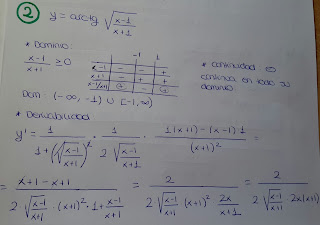 ② y = arctg √((x-1)/(x+1))
* Dominio:
(x-1)/(x+1) ≥ 0
-1 1
x-1 - - +
x+1 - + +
x-1/x+1 (+) - (+)
* Continuidad es
continua en todo su
dominio.
Dom: (-∞, -1) ∪ [-1, ∞)
* Derivabilidad
y' = 1/(1+(√((x-1)/(x+1)))²) · 1/(2√((x-1)/(x+1))) · (1(x+1)-(x-1)·1)/(x+1)² =
= (x+1-x+1)/(2√((x-1)/(x+1)) · (x+1)² · 1+(x-1)/(x+1)) = 2/(2√((x-1)/(x+1)) (x+1)² 2x/(x+1)) = 2/(2√((x-1)/(x+1)) · 2x(x+1))